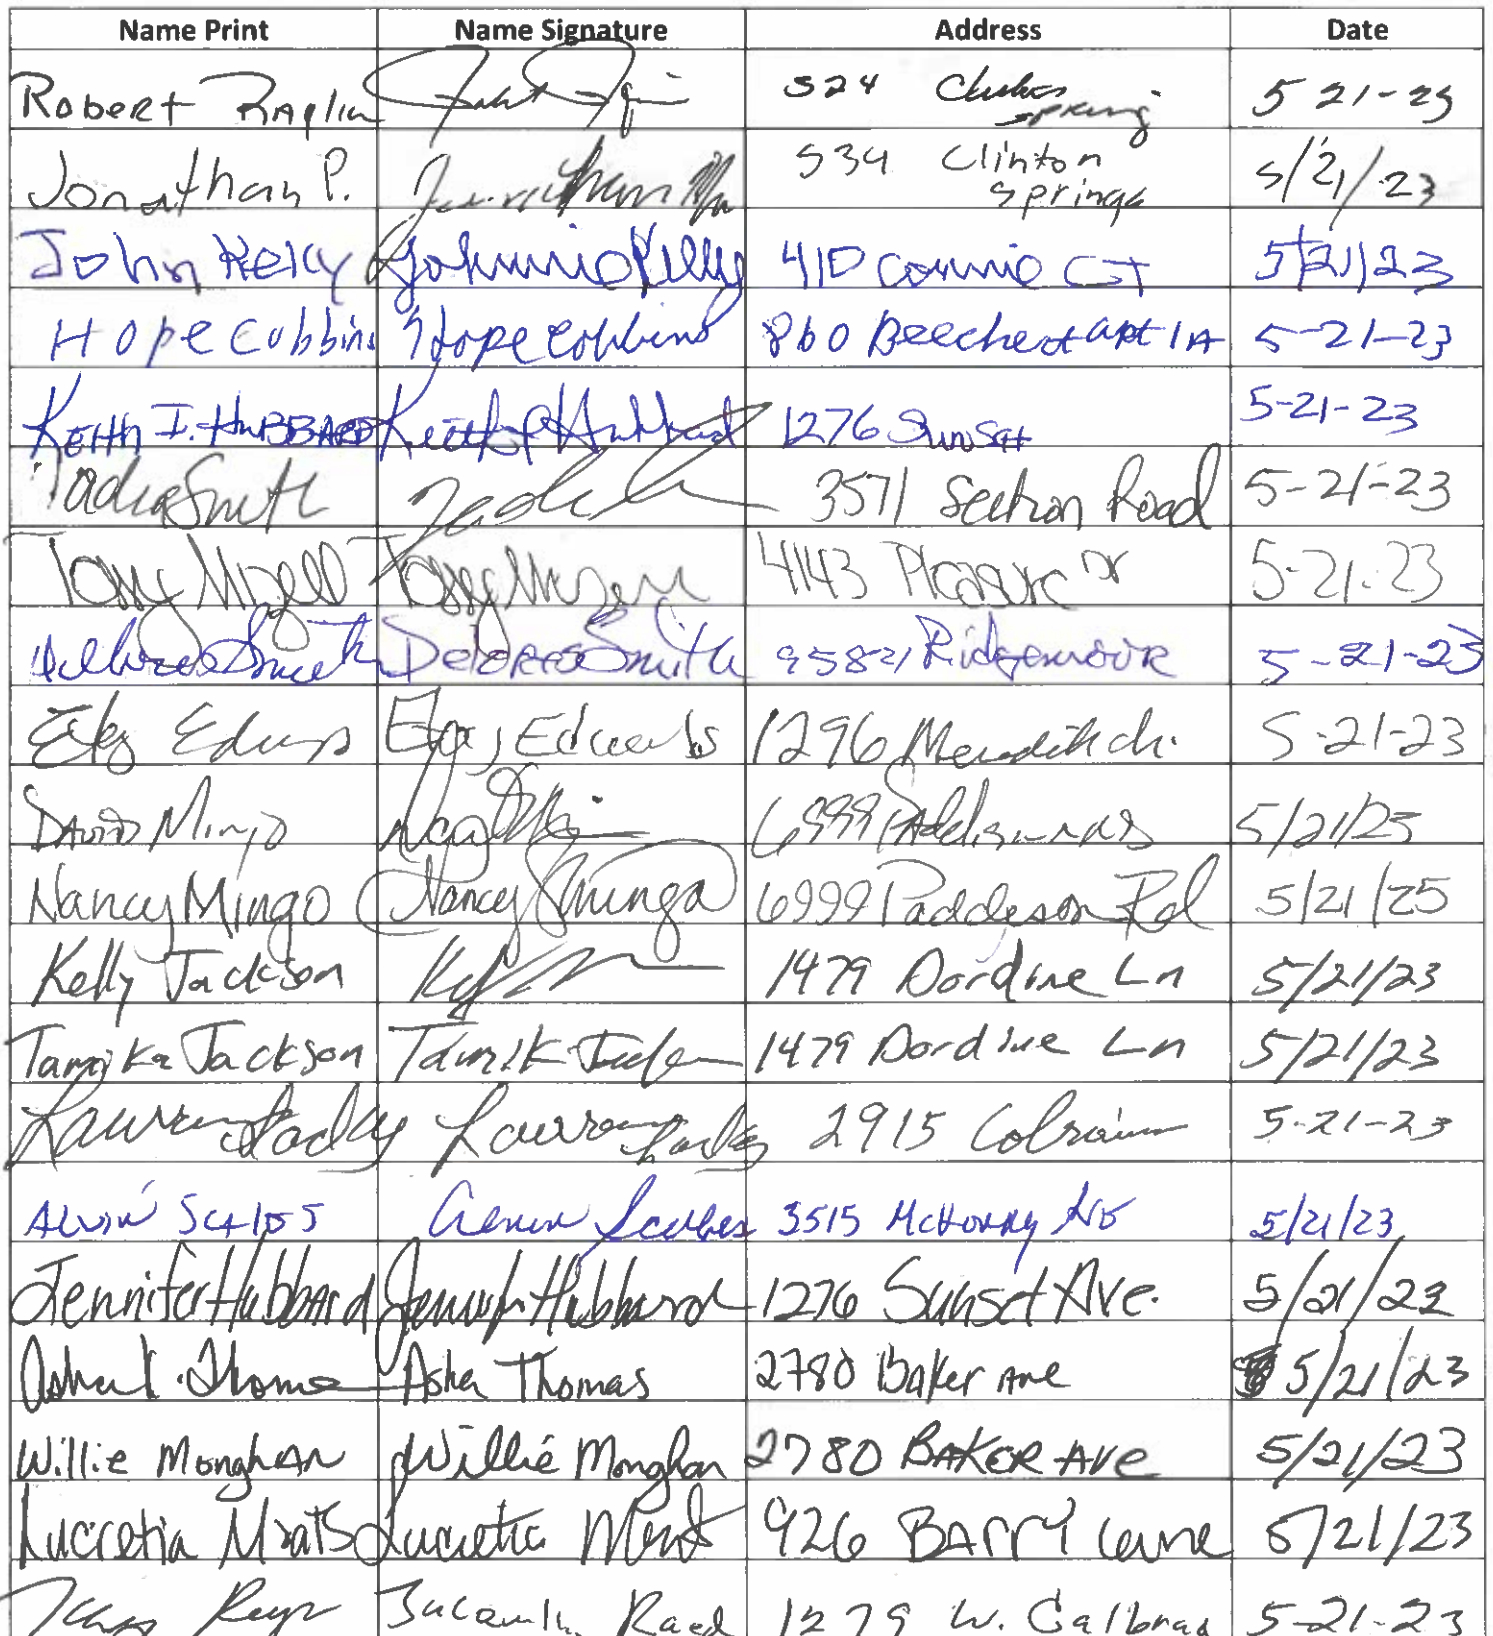 Name Print Name Signature Address Date
Robert 524 5 21-23
Jonathan P. 534 Clinton Springs 5/21/23
John Kelly Johnnie Kelly 410 Connie CT 5/21/23
Hope Cobbins Hope Cobbins 860 Beecher apt 1A 5-21-23
Keith I. HubBARD Keith Hubbard 1276 SunSet 5-21-23
Smith 3571 Section Road 5-21-23
Tony Mizell Tony Mizell 4143 Pleasure Dr 5-21-23
Delores Smith Delores Smith 9582 Ridgemoor 5-21-23
Edwards 1296 Meredith dr. 5-21-23
DAVID Mingo 6999 5/21/23
Nancy Mingo Nancy Minga 6999 Paddeson Rd 5/21/25
Kelly Jackson 1479 Dordine Ln 5/21/23
Tamika Jackson 1479 Dordine Ln 5/21/23
Lackey 2915 Colrain 5-21-23
ALVIN 3515 McHenry 5/21/23
Jennifer Hubbard Jennifer Hubbard 1276 Sunset Ave. 5/21/23
Thomas Asha Thomas 2780 Baker Ave 5/21/23
Willie MonghAN Willie Monghan 2780 BAKER AVE 5/21/23
Lucretia Lucretia 926 BARRY Lane 5/21/23
1279 W. Galbrad 5-21-23